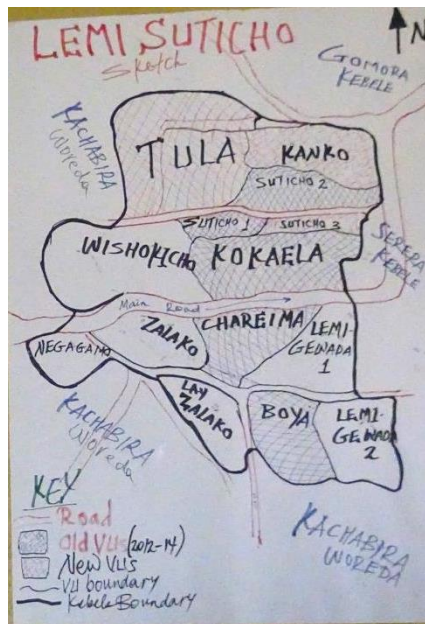 LEMI SUTICHO
Sketch
N
GOMORA
KEBELE
KACHABIRA
Woreda
TULA
KANKO
SUTICHO 2
SUTICHO 1
SUTICHO 3
WISHOKICHO
KOKAELA
SERERA
KEBELE
Main Road
ZALAKO
CHAREIMA
LEMI-
GEWADA
1
NEGAGAMO
LAY
ZALAKO
BOYA
LEMI-
GEWADA
2
KACHABIRA
Woreda
KACHABIRA
WOREDA
KEY
Road
Old VUs (2012-14)
New VUs
VU boundary
Kebele Boundary